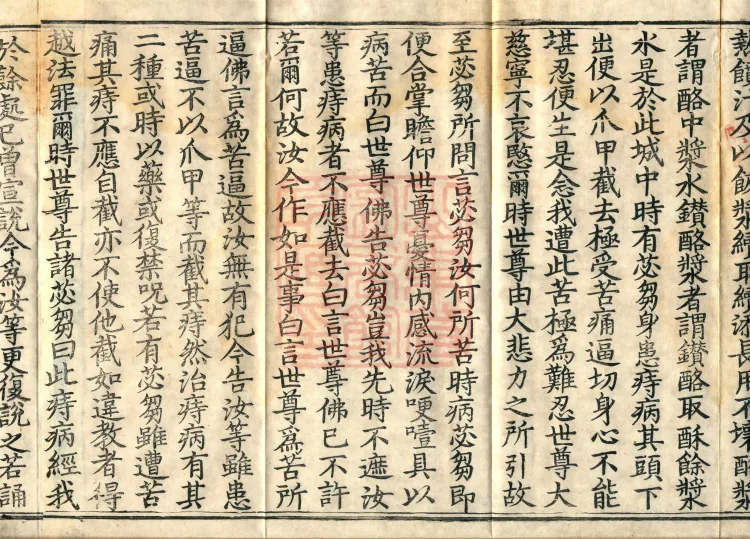 熱饙汁及以餘漿經耳經漉長用不壞酪漿
者謂酪中漿水鑚酪漿者謂鑚酪取酥餘漿
水是於此城中時有苾芻身患痔病其頭下
出便以爪甲截去極受苦痛逼切身心不能
堪忍便生是念我遭此苦極為難忍世尊大
慈寧不哀愍爾時世尊由大悲力之所引故
至苾芻所問言苾芻汝何所苦時病苾芻即
便合掌瞻仰世尊憂情內感流淚哽噎具以
病苦而白世尊佛告苾芻豈我先時不遮汝
等患痔病者不應截去白言世尊佛已不許
若爾何故汝今作如是事白言世尊為苦所
逼佛言為苦逼故汝無有犯今告汝等雖患
苦逼不以爪甲等而截其痔然治痔病有其
二種或時以藥或復禁呪若有苾芻雖遭苦
痛其痔不應自截亦不使他截如違教者得
越法罪爾時世尊告諸苾芻曰此痔病經我
於餘處已曾宣說今為汝等更復說之若誦